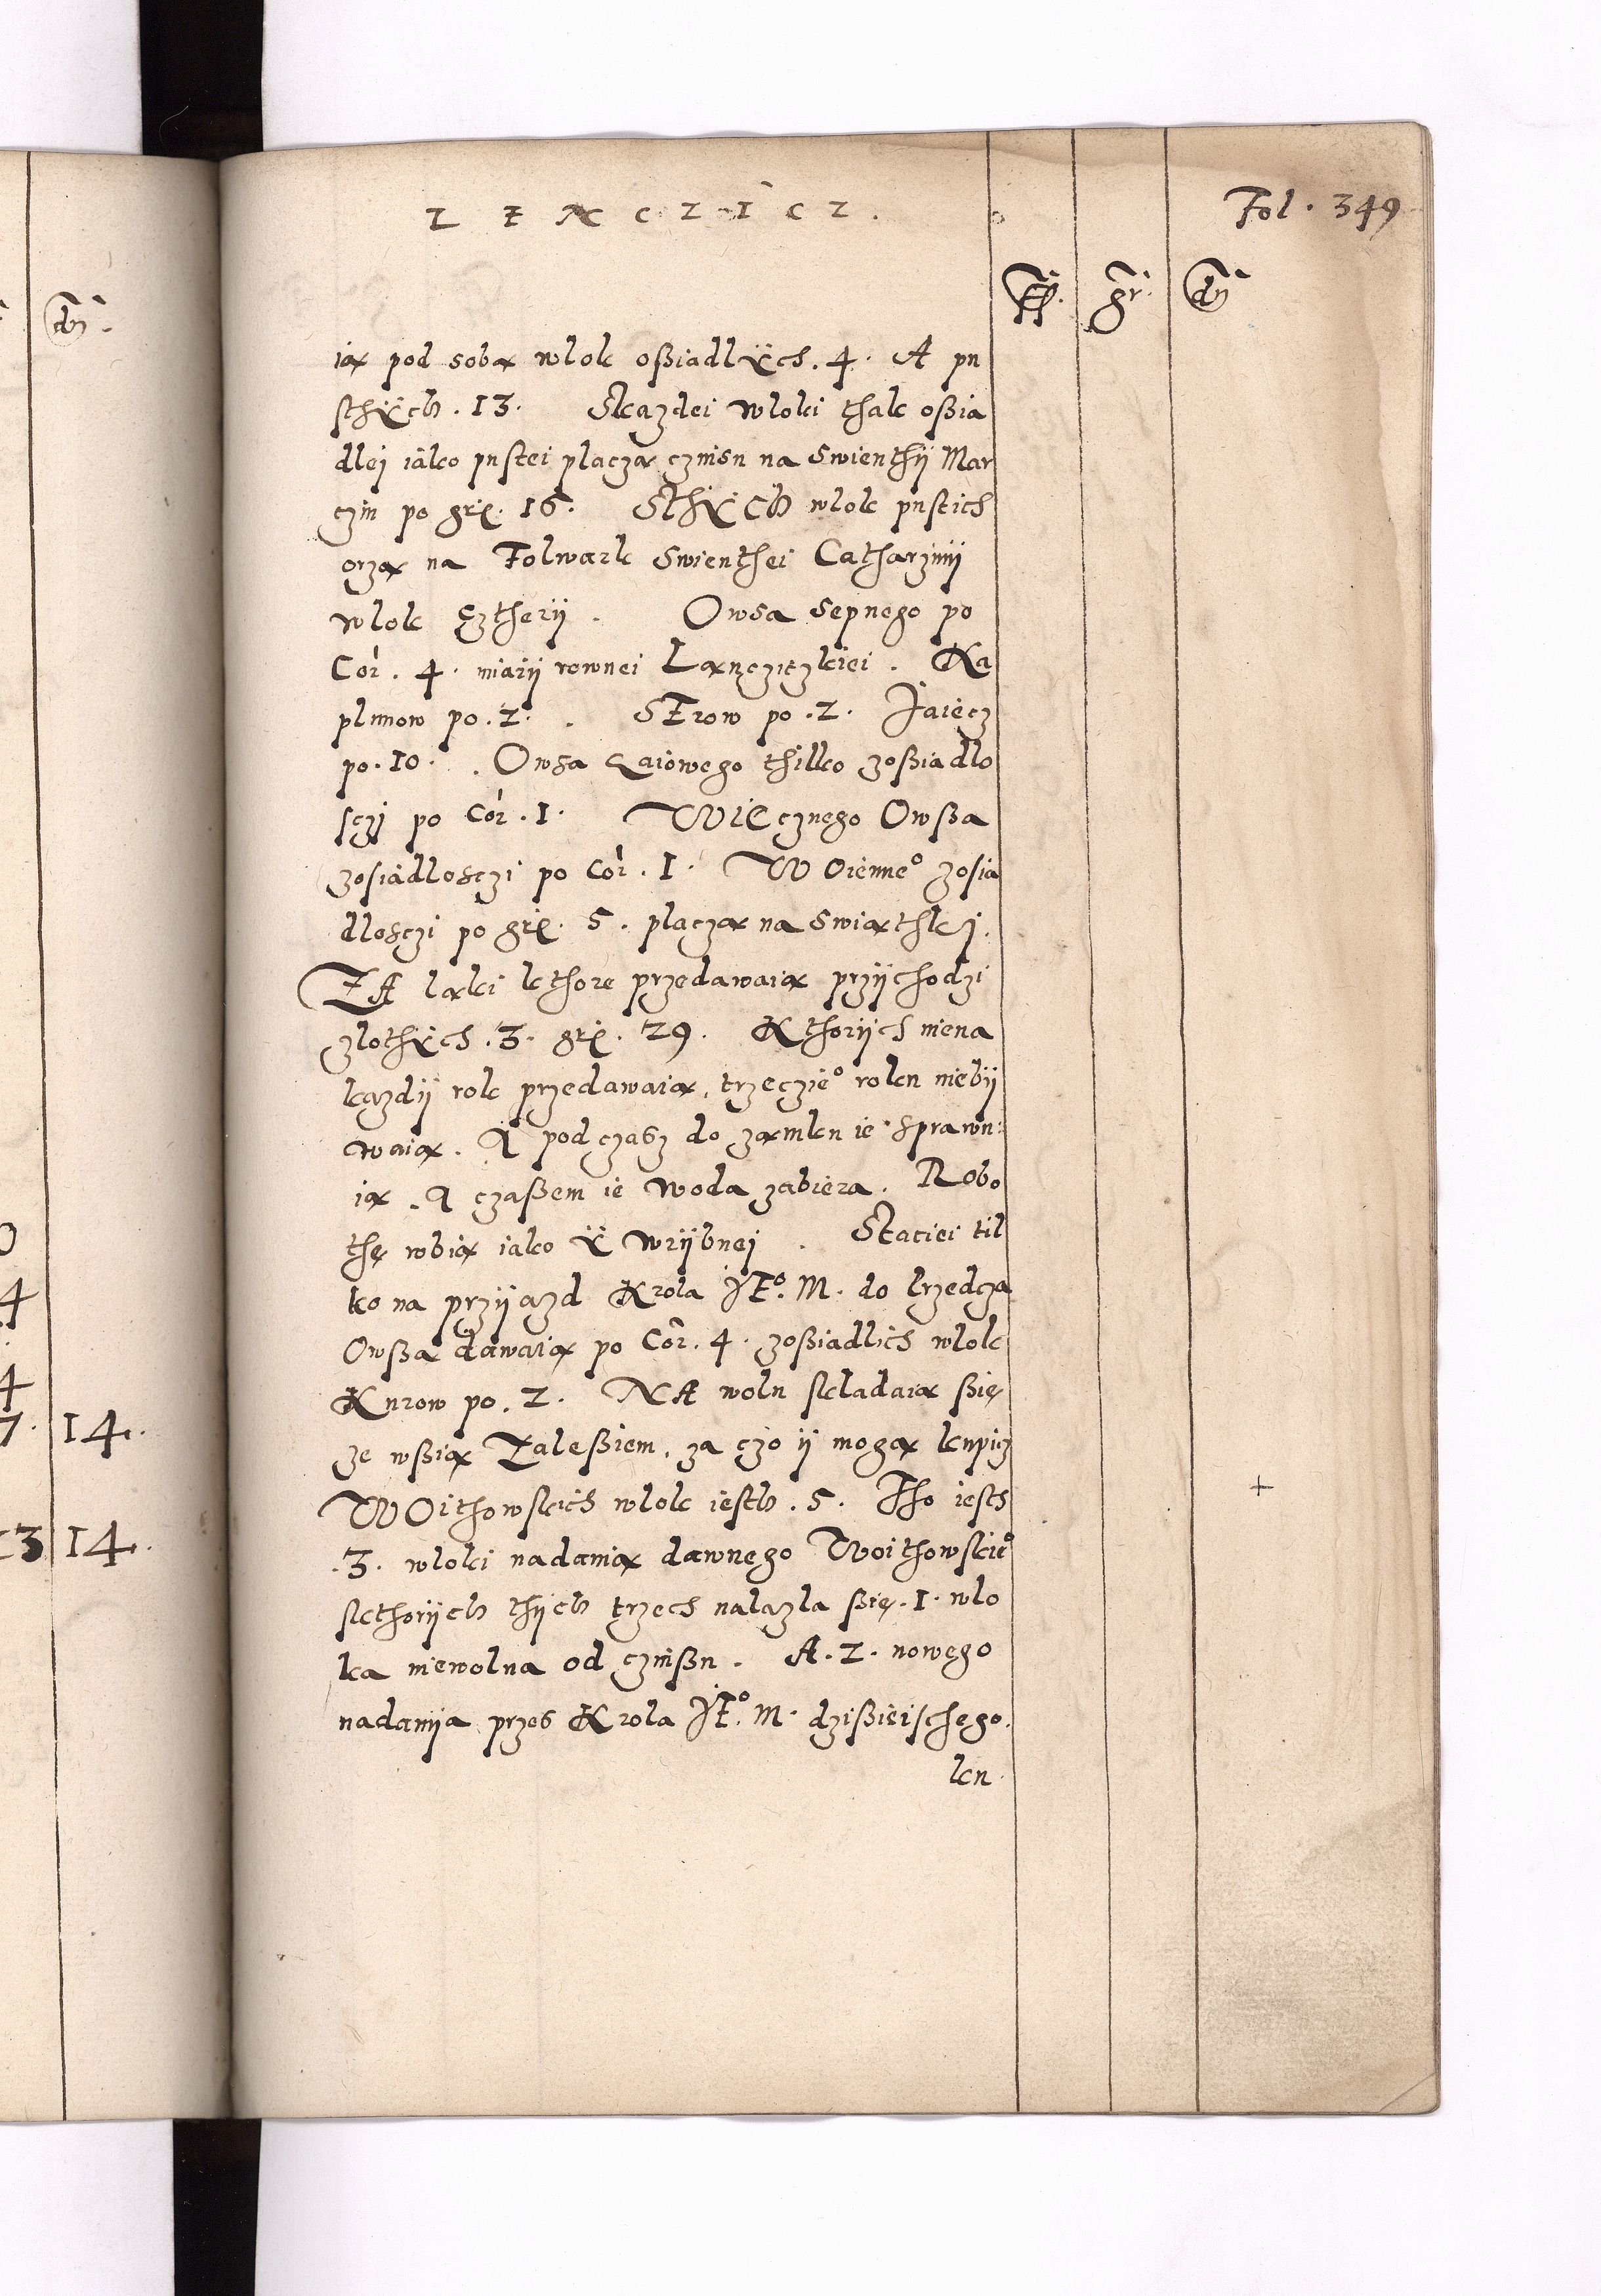 LENCZICZ.
Fol. 349
fl. gr. dn
ią pod sobą wlok oßiadlÿch. 4. A pu
sthÿch. 13. Skazdei wloki thak oßia
dlej iako pustei placzą czinsu na Swienthÿ Mar
czin po grͤ. 16. Sthÿch wlok pustich
orzą na Folwark Swienthei Catharzinÿ
wlok Cztherÿ. Owsa Sepnego po
Cor. 4. miarÿ rownei Lanczyczkiei. Ka
plunow po. 2. Serow po. 2. Jaiecz
po. 10. Owsa Gaiowego thilko zoßiadlo
sczj po Cor. 1. Wiecznego Owßa
zosiadlosczi po Cor. 1. Woienne° zosia
dlosczi po grͤ. 5. placzą na Swiąthkj.
ZA ląki kthore przedawaią przÿchodzi
zlothÿch. 3. grͤ. 29. Kthorÿch niena
kazdÿ rok przedawaią, trzeczie° roku niebÿ
waią. A podczasz do zamku ie sprawu:
ią. A czaßem ie woda zabiera. Robo
thę robią iako ÿ wrÿbnej. Staciei til
ko na przÿazd Krola JE°. M. do krzedcza
Owßa dawaią po Cor. 4. zoßiadlich wlok
Kurow po. 2. NA wolu skladaią ßię
ze wßią Zaleßiem, za czo ÿ mogą kupicz
Woithowskich wlok iesth. 5. Tho iesth
.3. wloki nadanią dawnego Woithowskie°
skthorÿch thÿch trzech nalazla ßię. 1. wlo
ka niewolna od czinßu. A. 2. nowego
nadanija przes Krola JE°. M. dzißieischego.
ku
dn.
4
4
7. 14.
13 14.